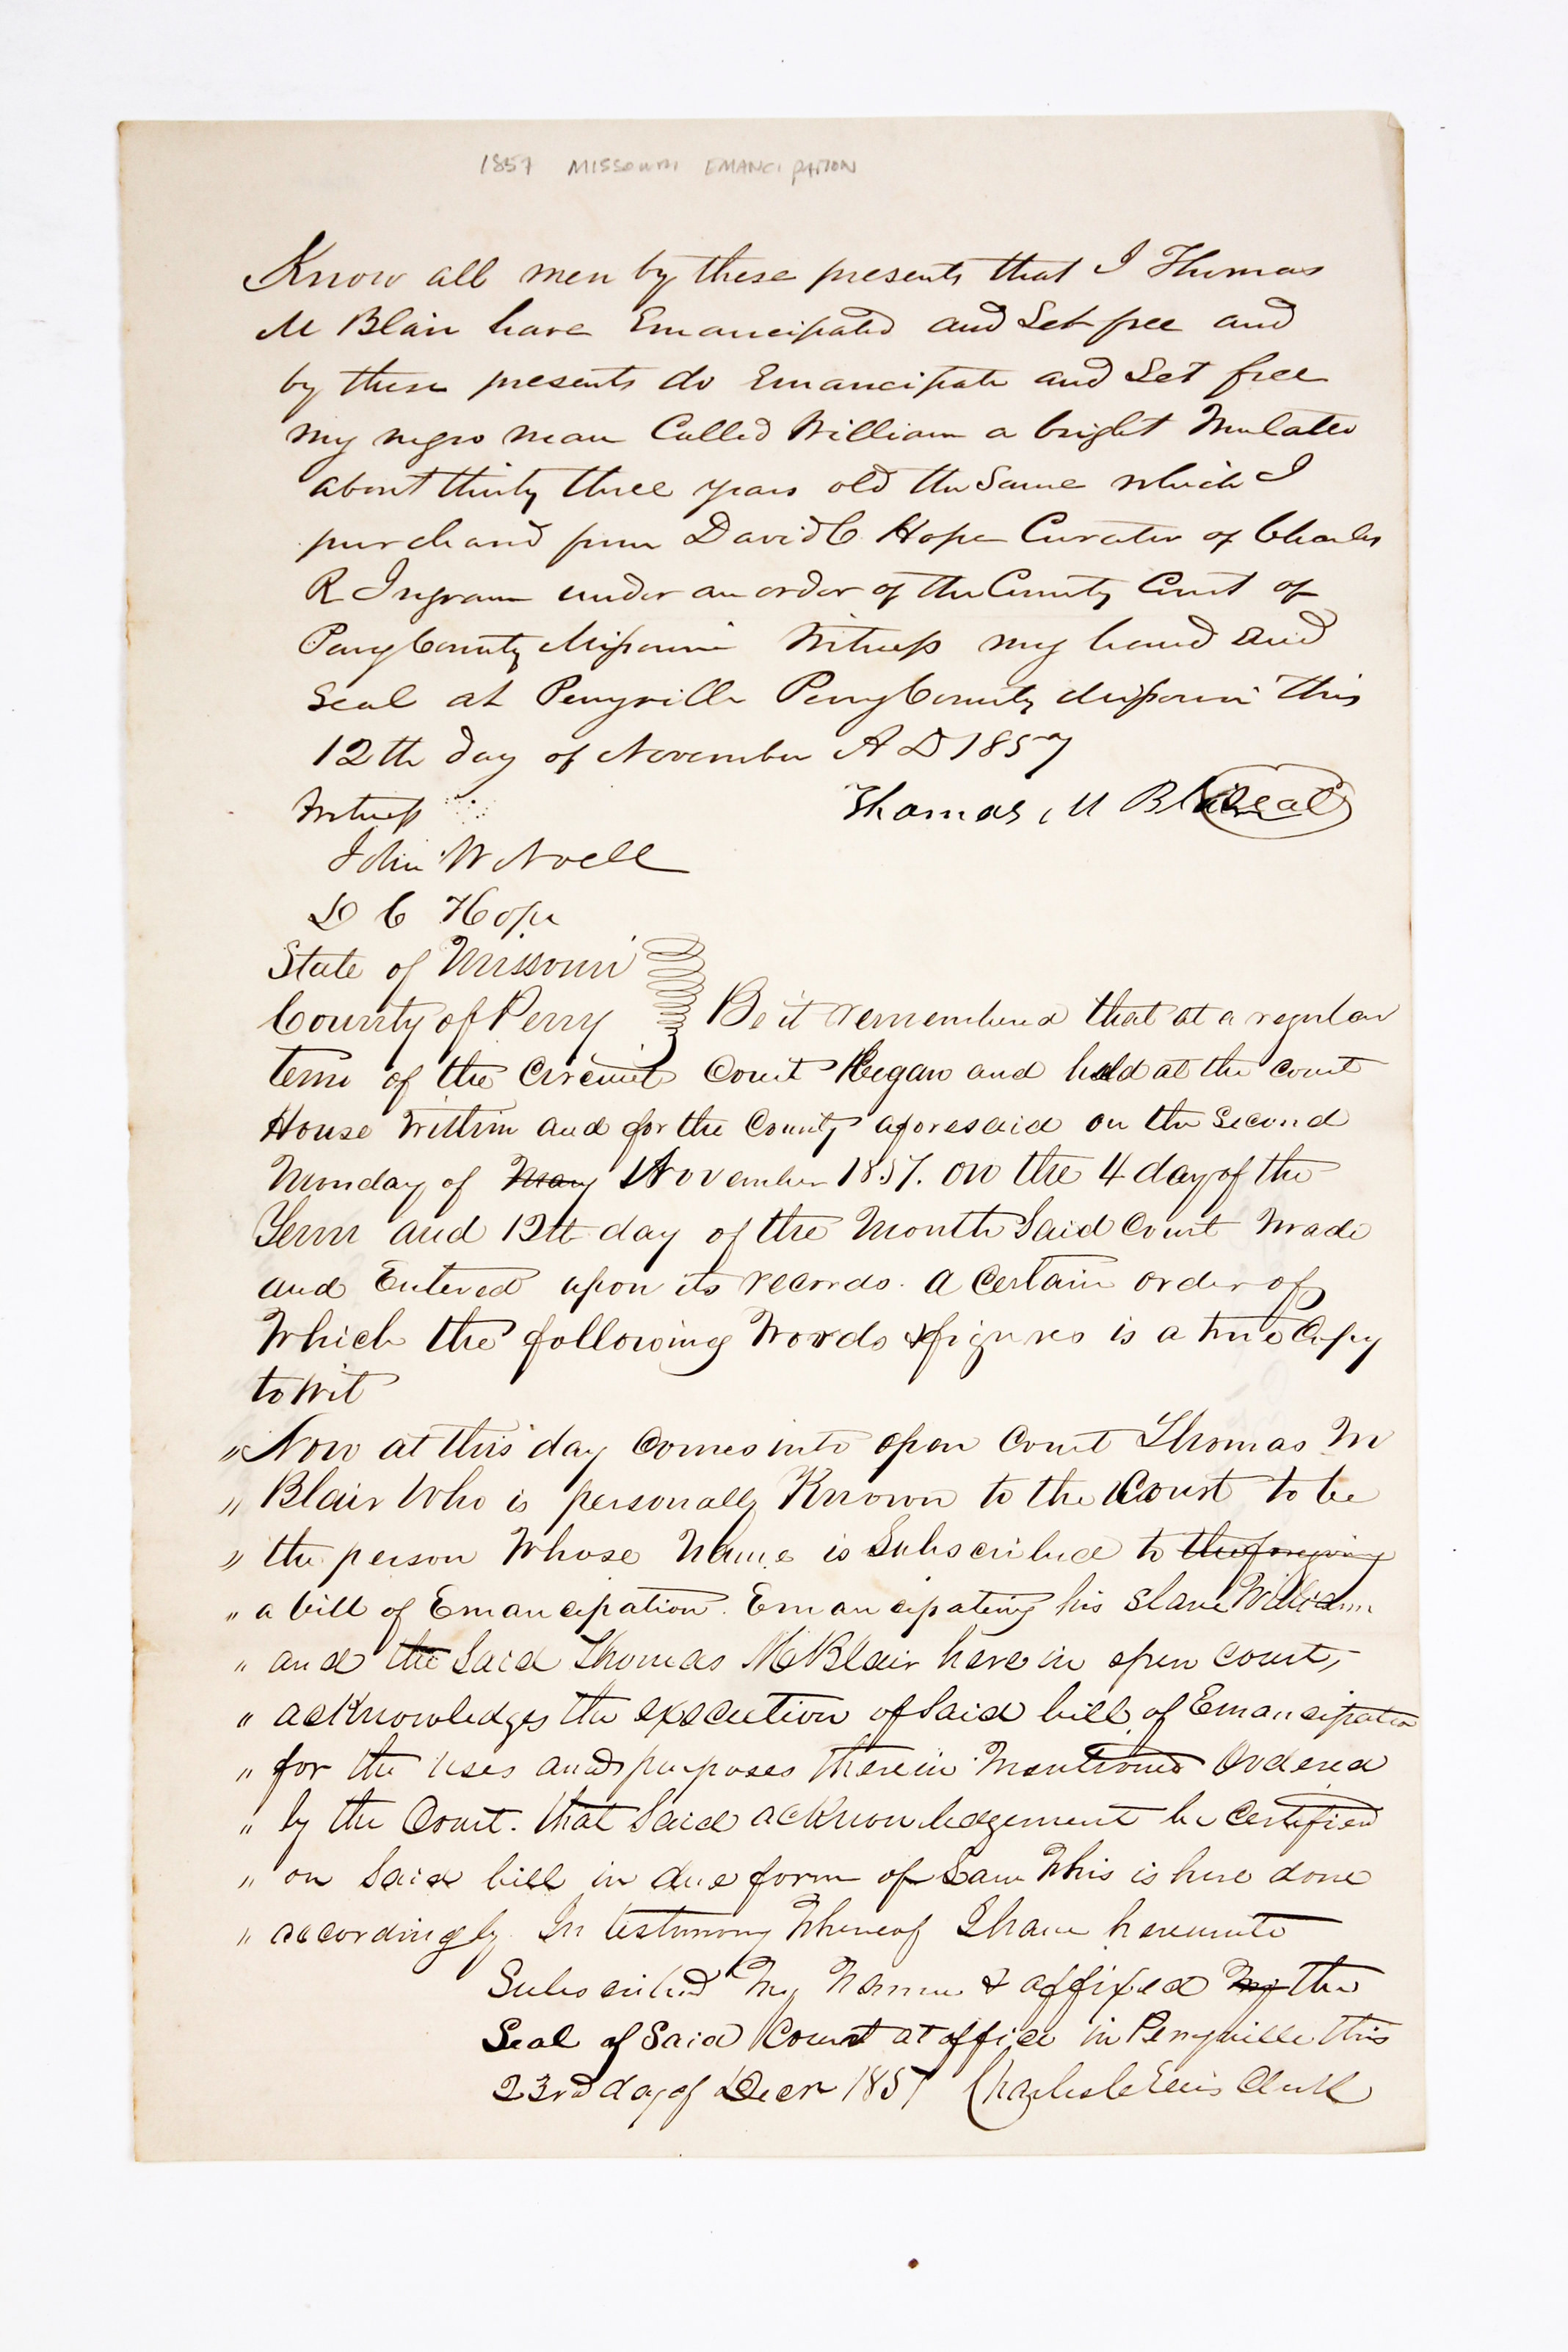 1857 MISSOURI EMANCIPATION
Know all men by these presents that I Thomas
M Blair have Emancipated and Set free and
by these presents do Emancipate and Set free
my negro man Called William a bright Mulatto
about thirty three years old the Same which I
purchased from David C Hope Curator of Charles
R Ingram under an order of the County Court of
Perry County Missouri Witness my hand and
Seal at Perryville Perry County Missouri this
12th day of November A D 1857
Witness Thomas M Blair Seal
John W Noell
D C Hope
State of Missouri
County of Perry Be it remembered that at a regular
term of the Circuit Court Began and held at the Court
House Within and for the County aforesaid on the Second
Monday of May November 1857. on the 4 day of the
Term and 12th day of the Month Said Court Made
and Entered upon its records. a Certain order of
Which the following Words & figures is a true Copy
to Wit
" Now at this day Comes into open Court Thomas M
" Blair Who is personally Known to the Court to be
" the person Whose Name is Subscribed to the foregoing
" a bill of Emancipation. Emancipating his Slave William
" and the Said Thomas M Blair here in open Court,
" acknowledges the execution of Said bill of Emancipation
" for the uses and purposes therein Mentioned Ordered
" by the Court. that Said acknowledgement be Certified
" on Said bill in due form of Law Which is here done
" accordingly. In testimony Whereof I have hereunto
Subscribed My Name & affixed My the
Seal of Said Court at office in Perryville this
23rd day of Decr 1857 Charles Clerk